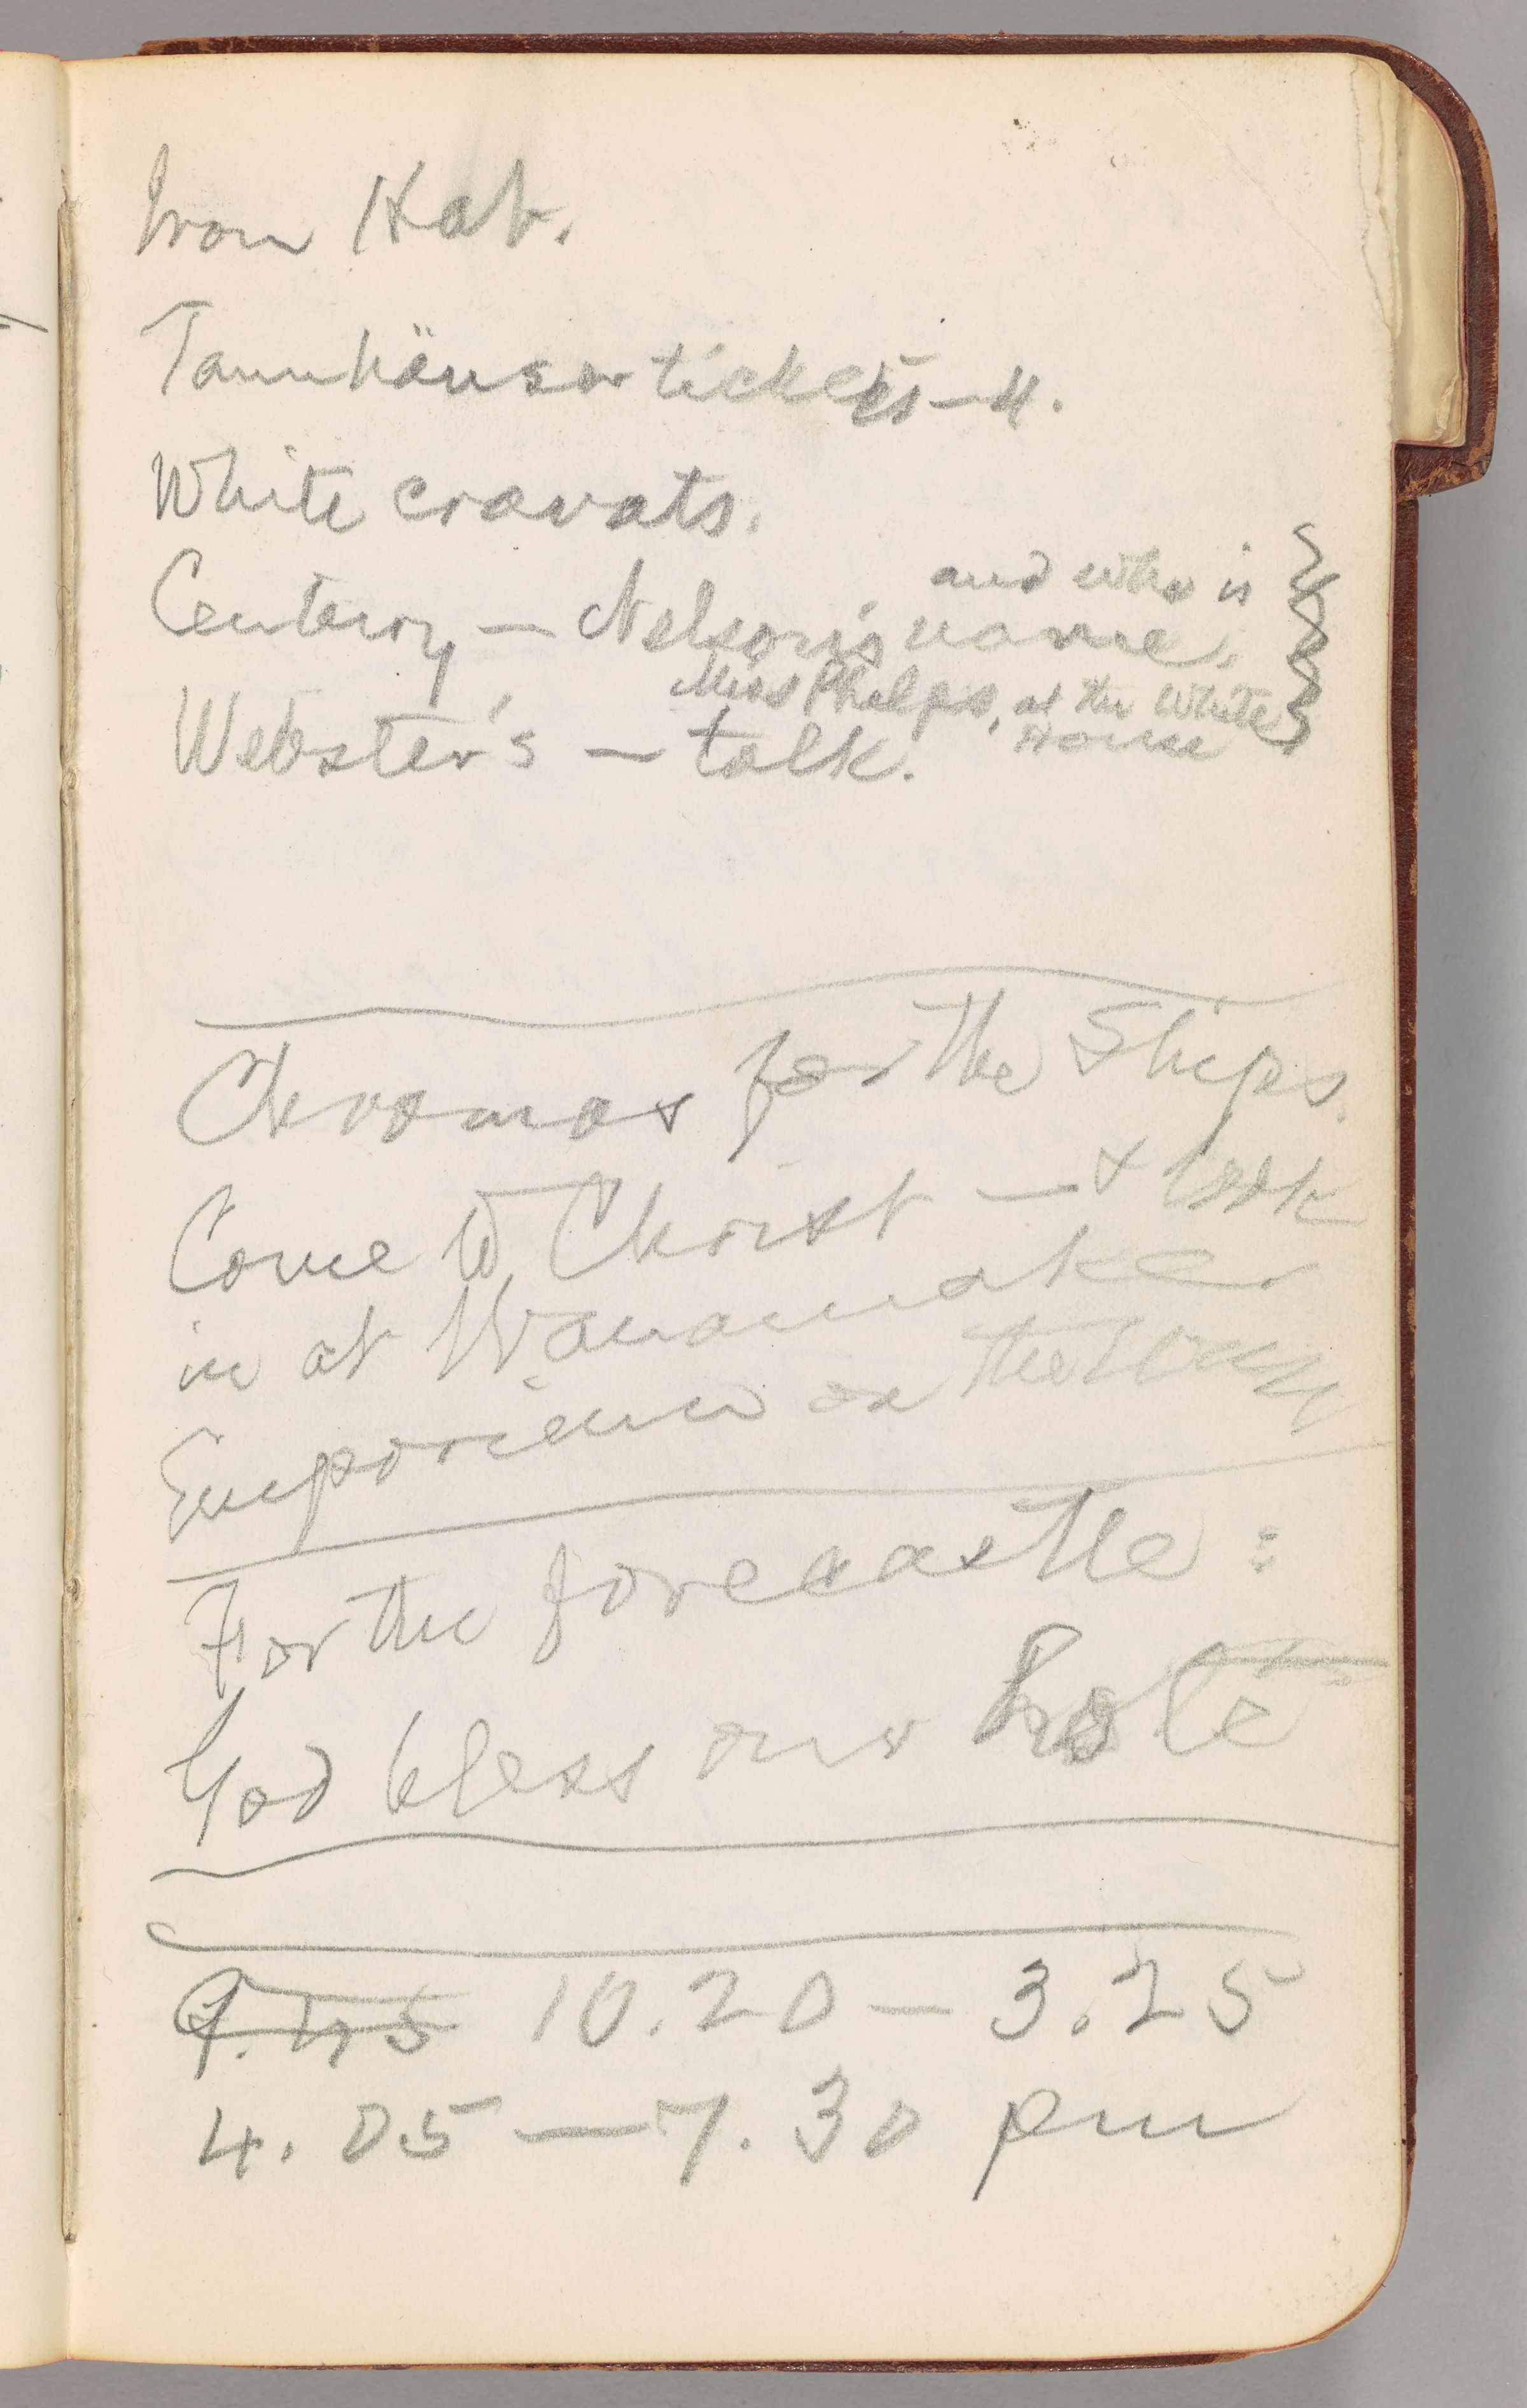 Iron Hat.
Tannhäuser tickets—4.
White cravats.
and who is
Century — Nelson's name.
Miss Phelps, at the White
House
Webster's — talk.
Chromos for the Ships.
Come to Christ — & look
in at Wanamaker
Emporium on the
For the forecastle:
God bless our
9.45 10.20 — 3.25
4.05 — 7.30 pm